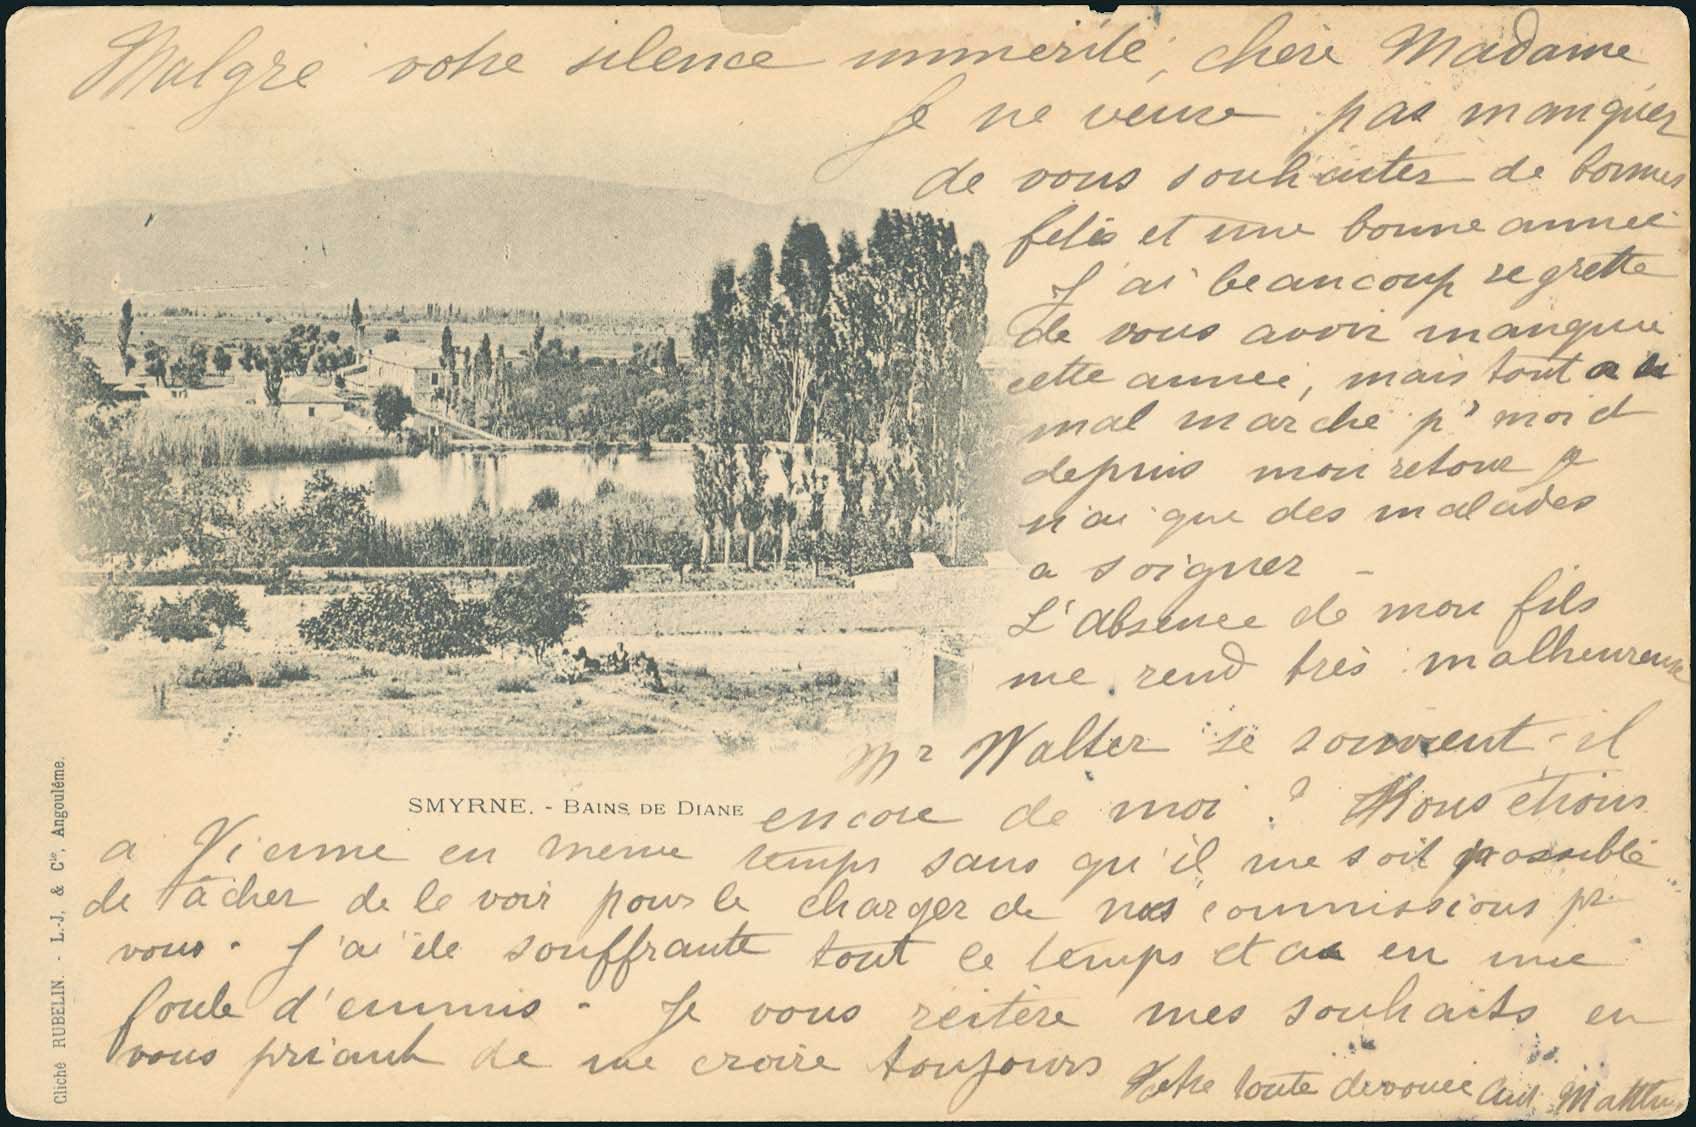 Malgré votre silence immérité, chère Madame
Je ne veux pas manquer
de vous souhaiter de bonnes
fêtes et une bonne année
J'ai beaucoup regretté
de vous avoir manquée
cette année, mais tout a
mal marché pr moi et
depuis mon retour je
n'ai que des malades
a soigner -
L'absence de mon fils
me rend très malheureuse
Mr Walter se souvient-il
SMYRNE. - BAINS DE DIANE
encore de moi ? Nous étions
a Vienne en meme temps sans qu'il me soit possible
de tâcher de le voir pour le charger de nos commissions pr
vous. J'ai été souffrante tout ce temps et ai eu une
foule d'ennuis - Je vous réitère mes souhaits en
vous priant de me croire toujours
Votre toute dévouée
Cliché RUBELIN. - L.-J. & Cie, Angoulême.